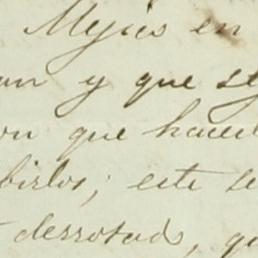 Mejico en
un y que se
on que hacer
birlos; este se
derrotado, qu